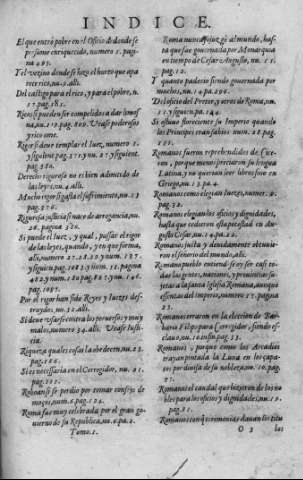 INDICE.
El que entró pobre en el Oficio de donde se
presume enriquecido, numero 1. pagina
495.
Y el vezino donde se hizo el hurto que aparece
rico, nu. 9. alli.
Del castigo para el rico, y para el pobre, n.
17. pag. 181.
Ricos si pueden ser compelidos a dar limosna,
nu. 119. pag. 809. Vease poderosos
y rico ome.
Rigor si deue templar el Iuez, numero 1.
y siguient. pag. 271. y nu. 27. y siguient.
pag. 280.
Derecho riguroso no es bien admitido de
las leyes n. 4. alli.
Mucho rigor gasta el sufrimiento, nu. 23
pag. 276.
Rigurosa justicia si nace de arrogancia, nu.
28. pagina 280.
Si puede el Iuez, y qual, passar el rigor
de las leyes, quando, y en que forma,
alli, numero 27. 28. 29. y num.
y siguient. pag.
pag.
Por el rigor han sido Reyes y Iuezes destruydos,
nu. 32. alli.
Si deue usarse contra los toruosos y muy
malos, numero 34. alli. Vease Iusticia.
Riqueza quales cosas la obedecen, nu. 23.
pag.
Si es necessaria en el Corregidor, nu. 21.
pag. 111.
Roboan si se perdio por tomar consejo de
moços, num. 6. pag. 124.
Roma fue muy celebrada por el gran gouierno
de su Republica, nu. 6. pa. 2.
Tomo. 1.
Roma nunca sojuzgó al mundo, hasta
que fue gouernada por Monarqua
en tiempo de Cesar Augusto, nu. 11
pag. 12.
Y quanto padecio siendo gouernada por
muchos, nu. 10. pa. 12.
Del oficio del Pretor, y otros de Roma, nu.
11. y siguien. 144.
Si estuuo floreciente su Imperio quando
los Principes eran sabios num. 28. pag.
Romanos fueron reprehendidos de Ciceron,
porque menospreciaron su lengua
Latina, y no querian leer libros sino en
Griego, nu. 13. pa. 4.
Romanos como elegian Iuezes, numero 9.
pag. 32.
Romanos elegian los oficios y dignidades,
hasta que cedieron esta potestad en Augusto
Cesar, nu. 14. pa. 22.
Romanos justa y deuidamente obtuuieron
el señorio del mundo, alli.
Romano pueblo entendiese en su caso todas
las gentes, naciones, y prouincias sujetas
a la santa Iglesia Romana, aunque
esentas del imperio, numero 17. pagina
Romanos erraron en la eleccion de Barbario
Filipo para Corregidor, siendo esclauo,
nu. 10. in fin. pag. 13.
Romanos, porque como los Arcadios
trayan pintada la Luna en los çapatos
por diuisa de su nobleza, nu. 10. pag.
Romanos el caudal que hizieron de los nobles
para los oficios y dignidades, nu. 19.
pag. 51.
Romanos con q̃ ceremonias dauan los titu
O 2 los